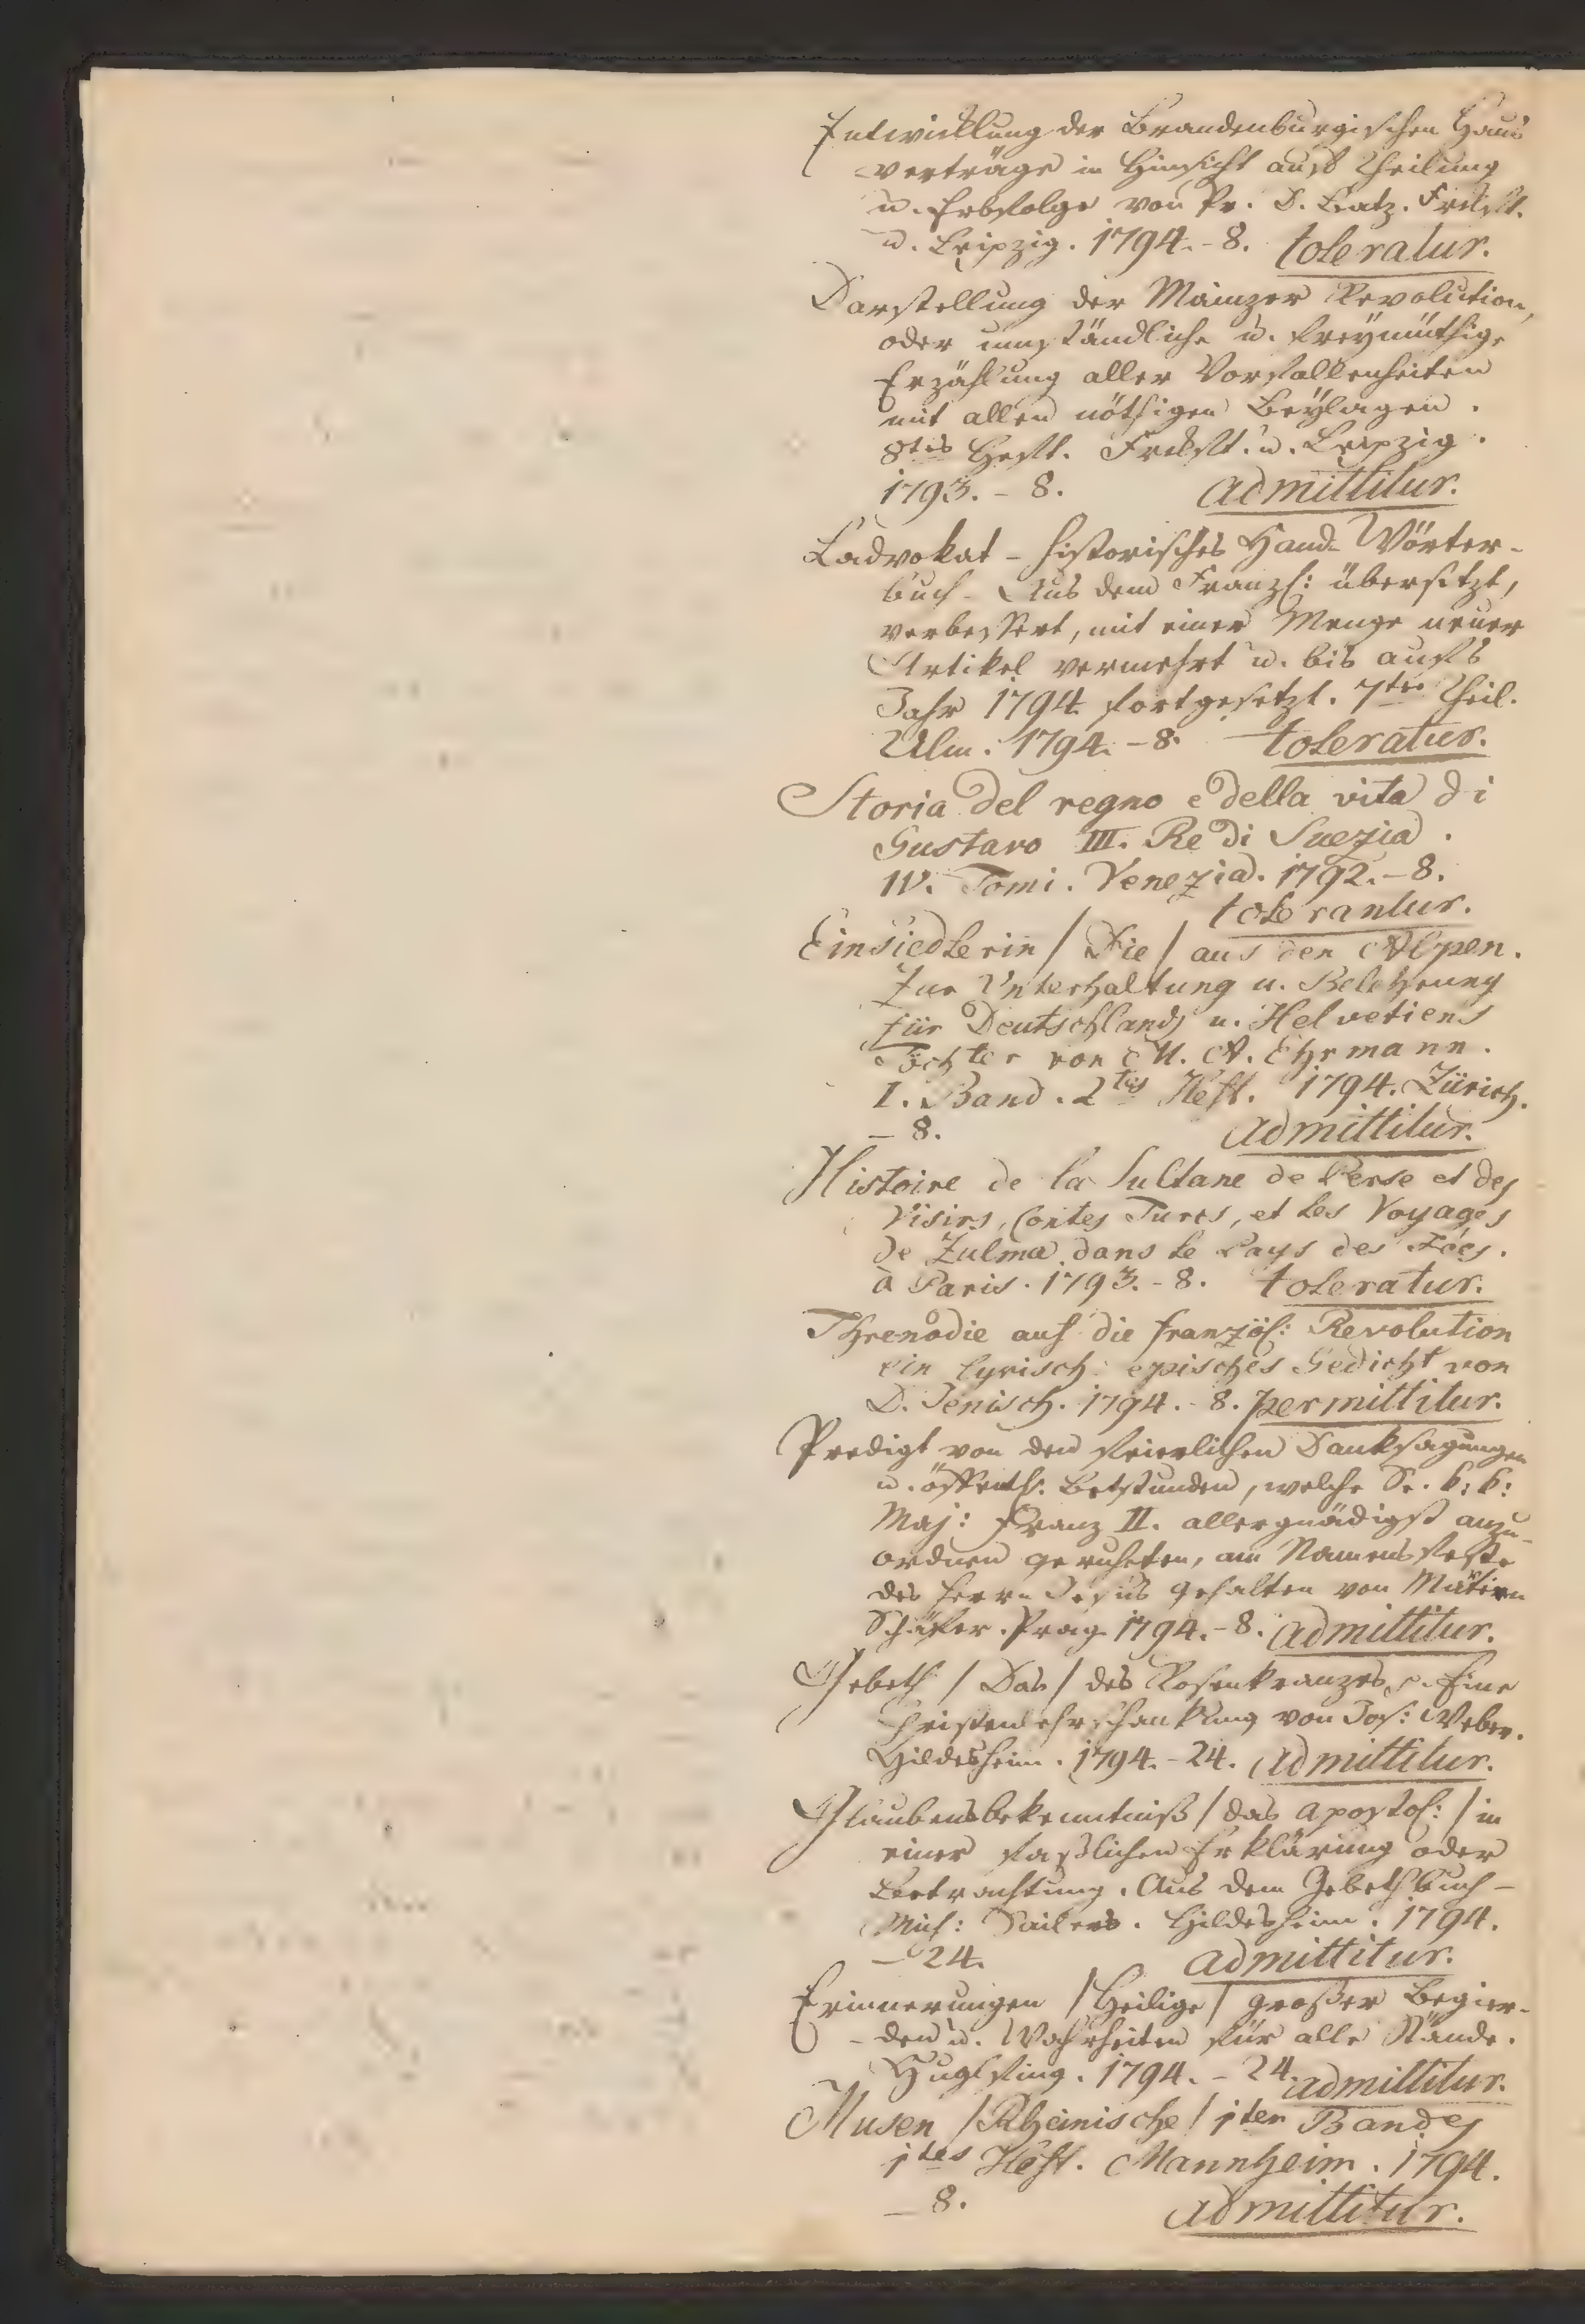 Entwicklung der Brandenburgischen Haus
verträge in Hinsicht auf Theilung
u. Erbfolge von Pr. D. Batz. Frkft.
u. Leipzig. 1794.-8. toleratur.
Darstellung der Mainzer Revolution,
oder umständliche u. freymüthige
Erzählung aller Vorfallenheiten
mit allen nöthigen Beylagen.
8tes Heft. Frkft. u. Leipzig.
1793.-8. admittitur.
Ladvokat - historisches Hand-Wörter-
buch - Aus dem Franzs: übersetzt,
verbessert, mit einer Menge neuer
Artikel vermehrt u. bis aufs
Jahr 1794 fortgesetzt. 7ter Theil.
Ulm. 1794.-8. toleratur.
Storia del regno e della vita di
Gustavo III. Re di Suezia.
IV. Tomi. Venezia. 1792.-8.
tolerantur.
Einsiedlerin / Die / aus den Alpen.
Zur Unterhaltung u. Belehrung
für Deutschlands u. Helvetiens
Töchter von M. A. Ehrmann.
I. Band. 2tes Heft. 1794. Zürich.
- 8. admittitur.
Histoire de la Sultane de Perse et des
Visirs, Contes Turcs, et les Voyages
de Zulma dans le Pays des Fées.
à Paris. 1793.-8. toleratur.
Threnodie auf die französ: Revolution
ein lyrisch: episches Gedicht von
D. Jenisch. 1794.-8. permittitur.
Predigt von den feierlichen Danksagungen
u. öffentl. Betstunden, welche Se. k: k:
Maj: Franz II. allergnädigst anzu-
ordnen geruheten, am Namensfeste
des Herrn Jesus gehalten von
Schäfer. Prag. 1794.-8. admittitur.
Gebeth / Das / des Rosenkranzes. Eine
von Jos: Weber.
Hildesheim. 1794.-24. admittitur.
Glaubensbekenntniß / das apostol: / in
einer faßlichen Erklärung oder
Betrachtung. Aus dem Gebethbuch -
Mich: Sailers. Hildesheim. 1794.
- 24. admittitur.
Erinnerungen / Heilige / großer Begier-
-den u. Wahrheiten für alle Stände.
Huglfing. 1794.-24. admittitur.
Musen / Rheinische / 1ten Bandes
1tes Heft. Mannheim. 1794.
- 8. admittitur.